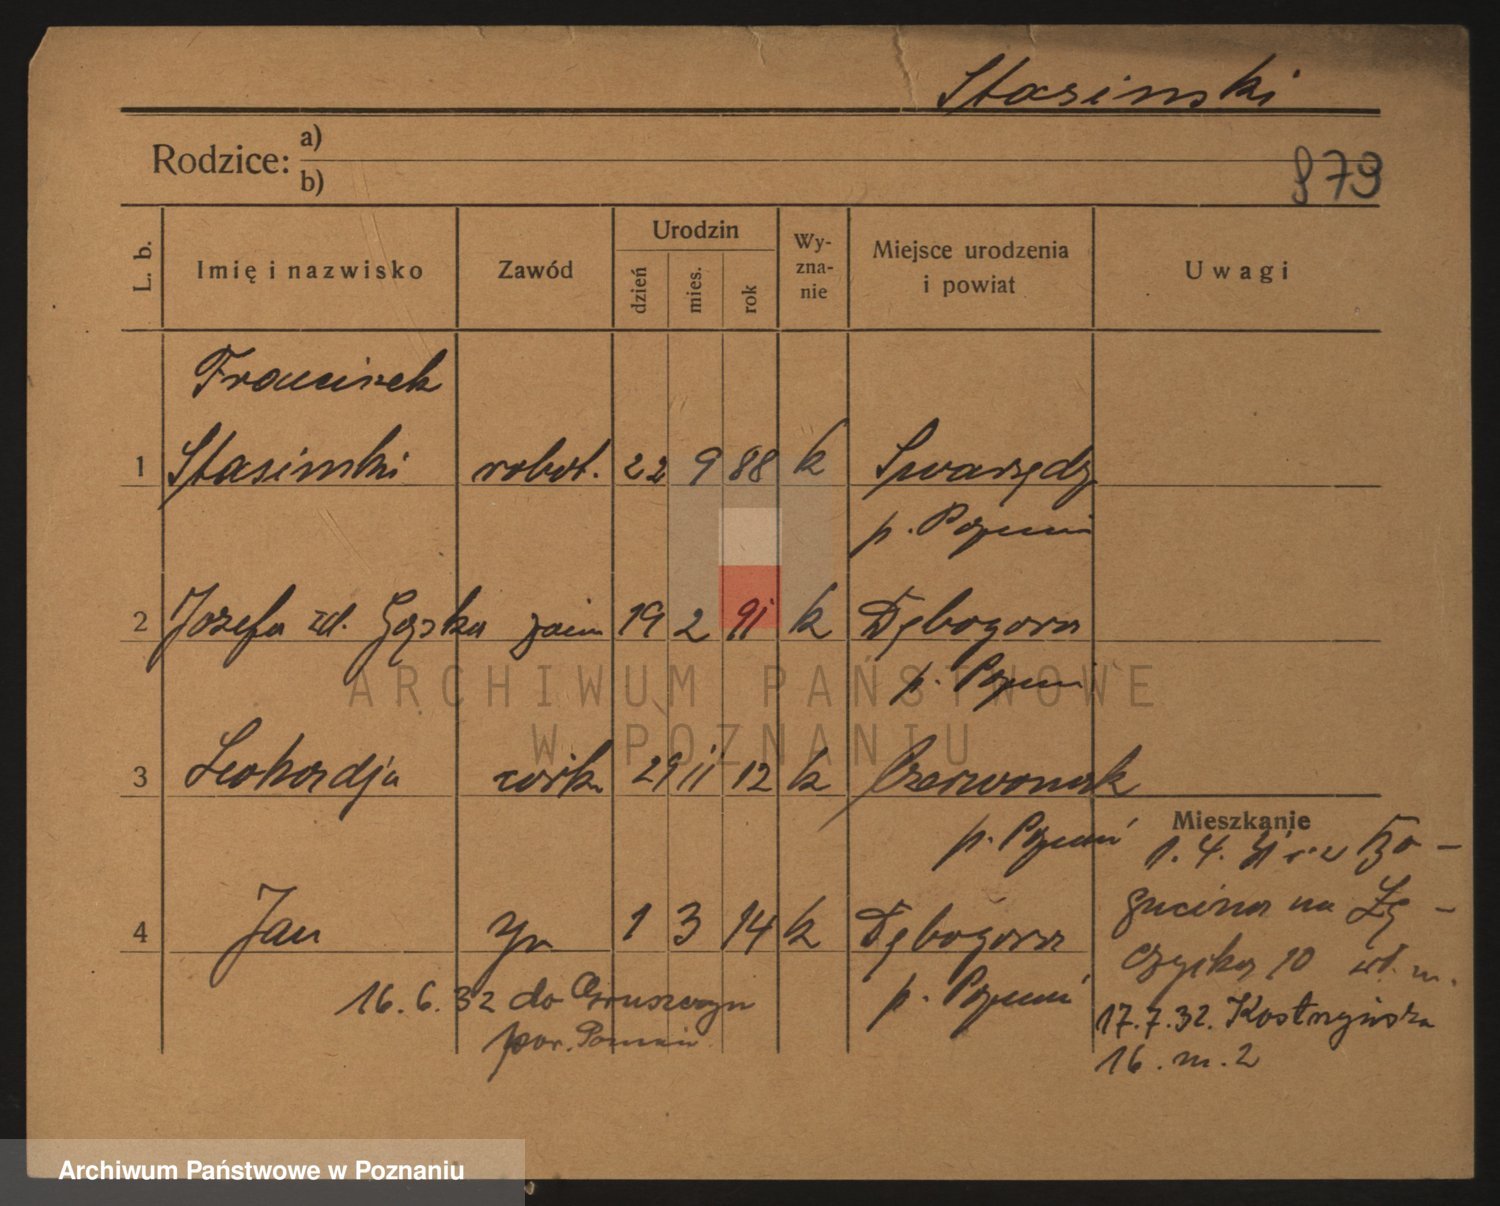 Stasinski
Rodzice: a)
b)
879
L. b.
Imię i nazwisko
Zawód
Urodzin
dzień
mies.
rok
Wy-
zna-
nie
Miejsce urodzenia
i powiat
Uwagi
Franciszek
1 Stasinski robot. 22 9 88 k Swarzędz
p. Poznań
2 Józefa zd. Gąska 19 2 91 k Dębogora
p. Poznań
3 Leokardja córk. 29 11 12 k Czerwonak
p. Poznań
4 Jan syn 1 3 14 k Dębogora
p. Poznań
16.6.32 do Gruszczyn
pow. Poznań
Mieszkanie
1.4.31
na
10
17.7.32. Kostrzyńska
16. m. 2
ARCHIWUM PAŃSTWOWE
W POZNANIU
Archiwum Państwowe w Poznaniu